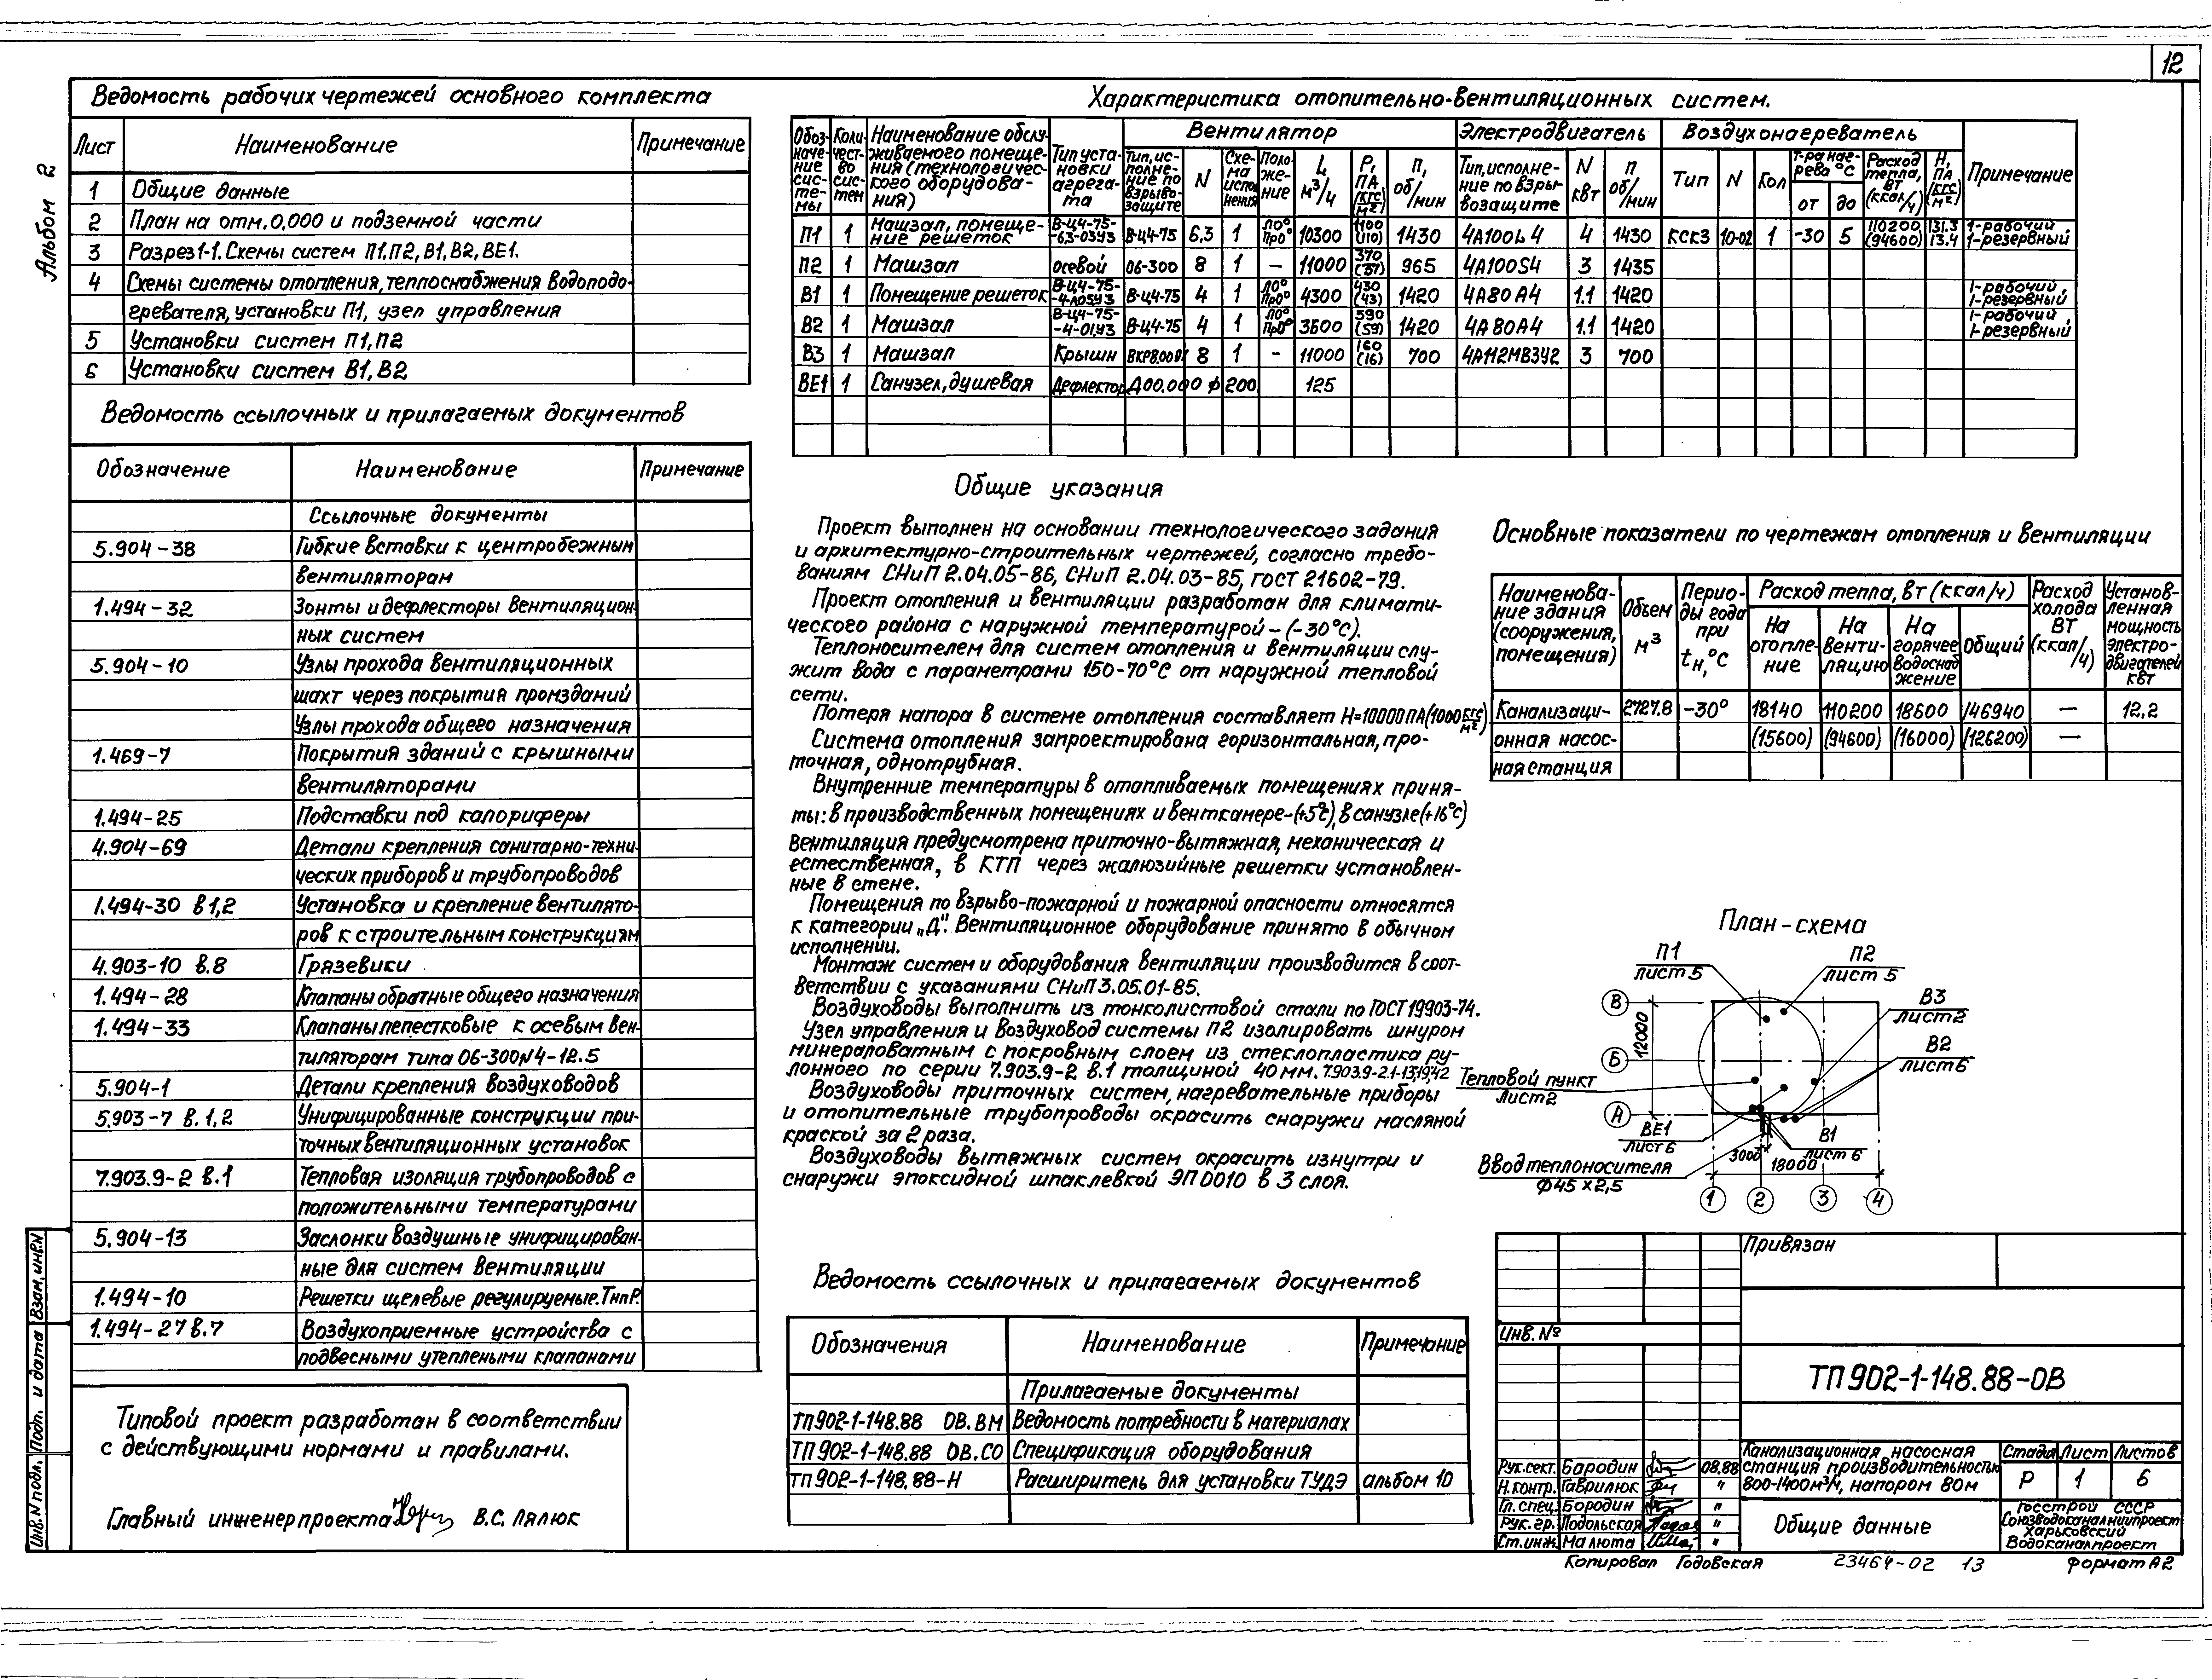 12
Альбом 2
Ведомость рабочих чертежей основного комплекта
Лист Наименование Примечание
1 Общие данные
2 План на отм. 0,000 и подземной части
3 Разрез 1-1. Схемы систем П1, П2, В1, В2, ВЕ1.
4 Схемы системы отопления, теплоснабжения водоподо-
гревателя, установки П1, узел управления
5 Установки систем П1, П2
6 Установки систем В1, В2
Ведомость ссылочных и прилагаемых документов
Обозначение Наименование Примечание
Ссылочные документы
5.904-38 Гибкие вставки к центробежным
вентиляторам
1.494-32 Зонты и дефлекторы вентиляцион-
ных систем
5.904-10 Узлы прохода вентиляционных
шахт через покрытия промзданий
Узлы прохода общего назначения
1.469-7 Покрытия зданий с крышными
вентиляторами
1.494-25 Подставки под калориферы
4.904-69 Детали крепления санитарно-техни-
ческих приборов и трубопроводов
1.494-30 в1,2 Установка и крепление вентилято-
ров к строительным конструкциям
4.903-10 в.8 Грязевики
1.494-28 Клапаны обратные общего назначения
1.494-33 Клапаны лепестковые к осевым вен-
тиляторам типа 06-300 N4-12.5
5.904-1 Детали крепления воздуховодов
5.903-7 в.1,2 Унифицированные конструкции при-
точных вентиляционных установок
7.903.9-2 в.1 Тепловая изоляция трубопроводов с
положительными температурами
5.904-13 Заслонки воздушные унифицирован-
ные для систем вентиляции
1.494-10 Решетки щелевые регулируемые. Тип Р.
1.494-27 в.7 Воздухоприемные устройства с
подвесными утеплеными клапанами
Типовой проект разработан в соответствии
с действующими нормами и правилами.
Главный инженер проекта В.С. Лялюк
Взам. инв. N
Подп. и дата
Инв. N подл.
Характеристика отопительно-вентиляционных систем.
Обоз-наче-ние сис-те-мы Коли-чест-во сис-тем Наименование обслу-живаемого помеще-ния (технологичес-кого оборудова-ния) Тип уста-новки агрега-та Вентилятор Электродвигатель Воздухонагреватель Примечание
Тип, ис-полне-ние по взрыво-защите N Схе-ма испол-нения Поло-же-ние L, м³/ч Р, ПА (кгс/м²) п, об/мин Тип, исполне-ние по взры-возащите N кВт п об/мин Тип N Кол Т-ра нагрева °С от до Расход тепла, Вт (ккал/ч) Н, ПА (кгс/м²)
П1 1 Машзал, помеще-ние решеток В-Ц4-75-6,3-03У3 В-Ц4-75 6.3 1 Л0° Пр0° 10300 1100 (110) 1430 4А100L4 4 1430 КСК3 10-02 1 -30 5 110200 (94600) 131.3 13.4 1-рабочий 1-резервный
П2 1 Машзал осевой 06-300 8 1 — 11000 370 (37) 965 4А100S4 3 1435
В1 1 Помещение решеток В-Ц4-75-4-Л05У3 В-Ц4-75 4 1 Л0° Пр0° 4300 430 (43) 1420 4А80А4 1.1 1420 1-рабочий, 1-резервный
В2 1 Машзал В-Ц4-75-4-01У3 В-Ц4-75 4 1 Л0° Пр0° 3600 590 (59) 1420 4А80А4 1.1 1420 1-рабочий, 1-резервный
В3 1 Машзал Крышн ВКР8.00 8 1 - 11000 160 (16) 700 4А112МВ3У2 3 700
ВЕ1 1 Санузел, душевая Дефлектор Д00.000 ф200 125
Общие указания
Проект выполнен на основании технологического задания
и архитектурно-строительных чертежей, согласно требо-
ваниям СНиП 2.04.05-86, СНиП 2.04.03-85, ГОСТ 21602-79.
Проект отопления и вентиляции разработан для климати-
ческого района с наружной температурой-(-30°С).
Теплоносителем для систем отопления и вентиляции слу-
жит вода с параметрами 150-70°С от наружной тепловой
сети.
Потеря напора в системе отопления составляет Н=10000ПА(1000 кгс/м²)
Система отопления запроектирована горизонтальная, про-
точная, однотрубная.
Внутренние температуры в отапливаемых помещениях приня-
ты: в производственных помещениях и венткамере-(+5°С), в санузле (+16°С)
Вентиляция предусмотрена приточно-вытяжная, механическая и
естественная, в КТП через жалюзийные решетки установлен-
ные в стене.
Помещения по взрыво-пожарной и пожарной опасности относятся
к категории „Д". Вентиляционное оборудование принято в обычном
исполнении.
Монтаж систем и оборудования вентиляции производится в соот-
ветствии с указаниями СНиП 3.05.01-85.
Воздуховоды выполнить из тонколистовой стали по ГОСТ 19903-74.
Узел управления и воздуховод системы П2 изолировать шнуром
минераловатным с покровным слоем из стеклопластика ру-
лонного по серии 7.903.9-2 в.1 толщиной 40 мм. 7.903.9-2.1-13,19,42
Воздуховоды приточных систем, нагревательные приборы
и отопительные трубопроводы окрасить снаружи масляной
краской за 2 раза.
Воздуховоды вытяжных систем окрасить изнутри и
снаружи эпоксидной шпаклевкой ЭП0010 в 3 слоя.
Основные показатели по чертежам отопления и вентиляции
Наименова-ние здания (сооружения, помещения) Объем м³ Перио-ды года при tн, °С Расход тепла, Вт (ккал/ч) Расход холода Вт (ккал/ч) Установ-ленная мощность электро-двигателей кВт
На отопле-ние На венти-ляцию На горячее водоснаб жение Общий
Канализаци- 2727.8 -30° 18140 110200 18600 146940 — 12,2
онная насос- (15600) (94600) (16000) (126200) —
ная станция
План-схема
П1 лист 5
П2 лист 5
В3 лист 2
В2 лист 6
Тепловой пункт лист 2
ВЕ1 лист 6
В1 лист 6
Ввод теплоносителя
Ф45×2,5
В Б А
12000
3000
18000
1 2 3 4
Ведомость ссылочных и прилагаемых документов
Обозначения Наименование Примечание
Прилагаемые документы
ТП902-1-148.88 ОВ.ВМ Ведомость потребности в материалах
ТП902-1-148.88 ОВ.СО Спецификация оборудования
ТП902-1-148.88-Н Расширитель для установки ТУДЭ альбом 10
Привязан
Инв. №
ТП 902-1-148.88-ОВ
Рук. сект. Бародин 08.88
Н. контр. Гаврилюк "
Гл. спец. Бородин "
Рук. гр. Подольская "
Ст. инж. Малюта "
Канализационная насосная
станция производительностью
800-1400м³/ч, напором 80м
Стадия Лист Листов
Р 1 6
Общие данные
Госстрой СССР
Союзводоканалниипроект
Харьковский
Водоканалпроект
Копировал Годовская 23464-02 13 Формат А2